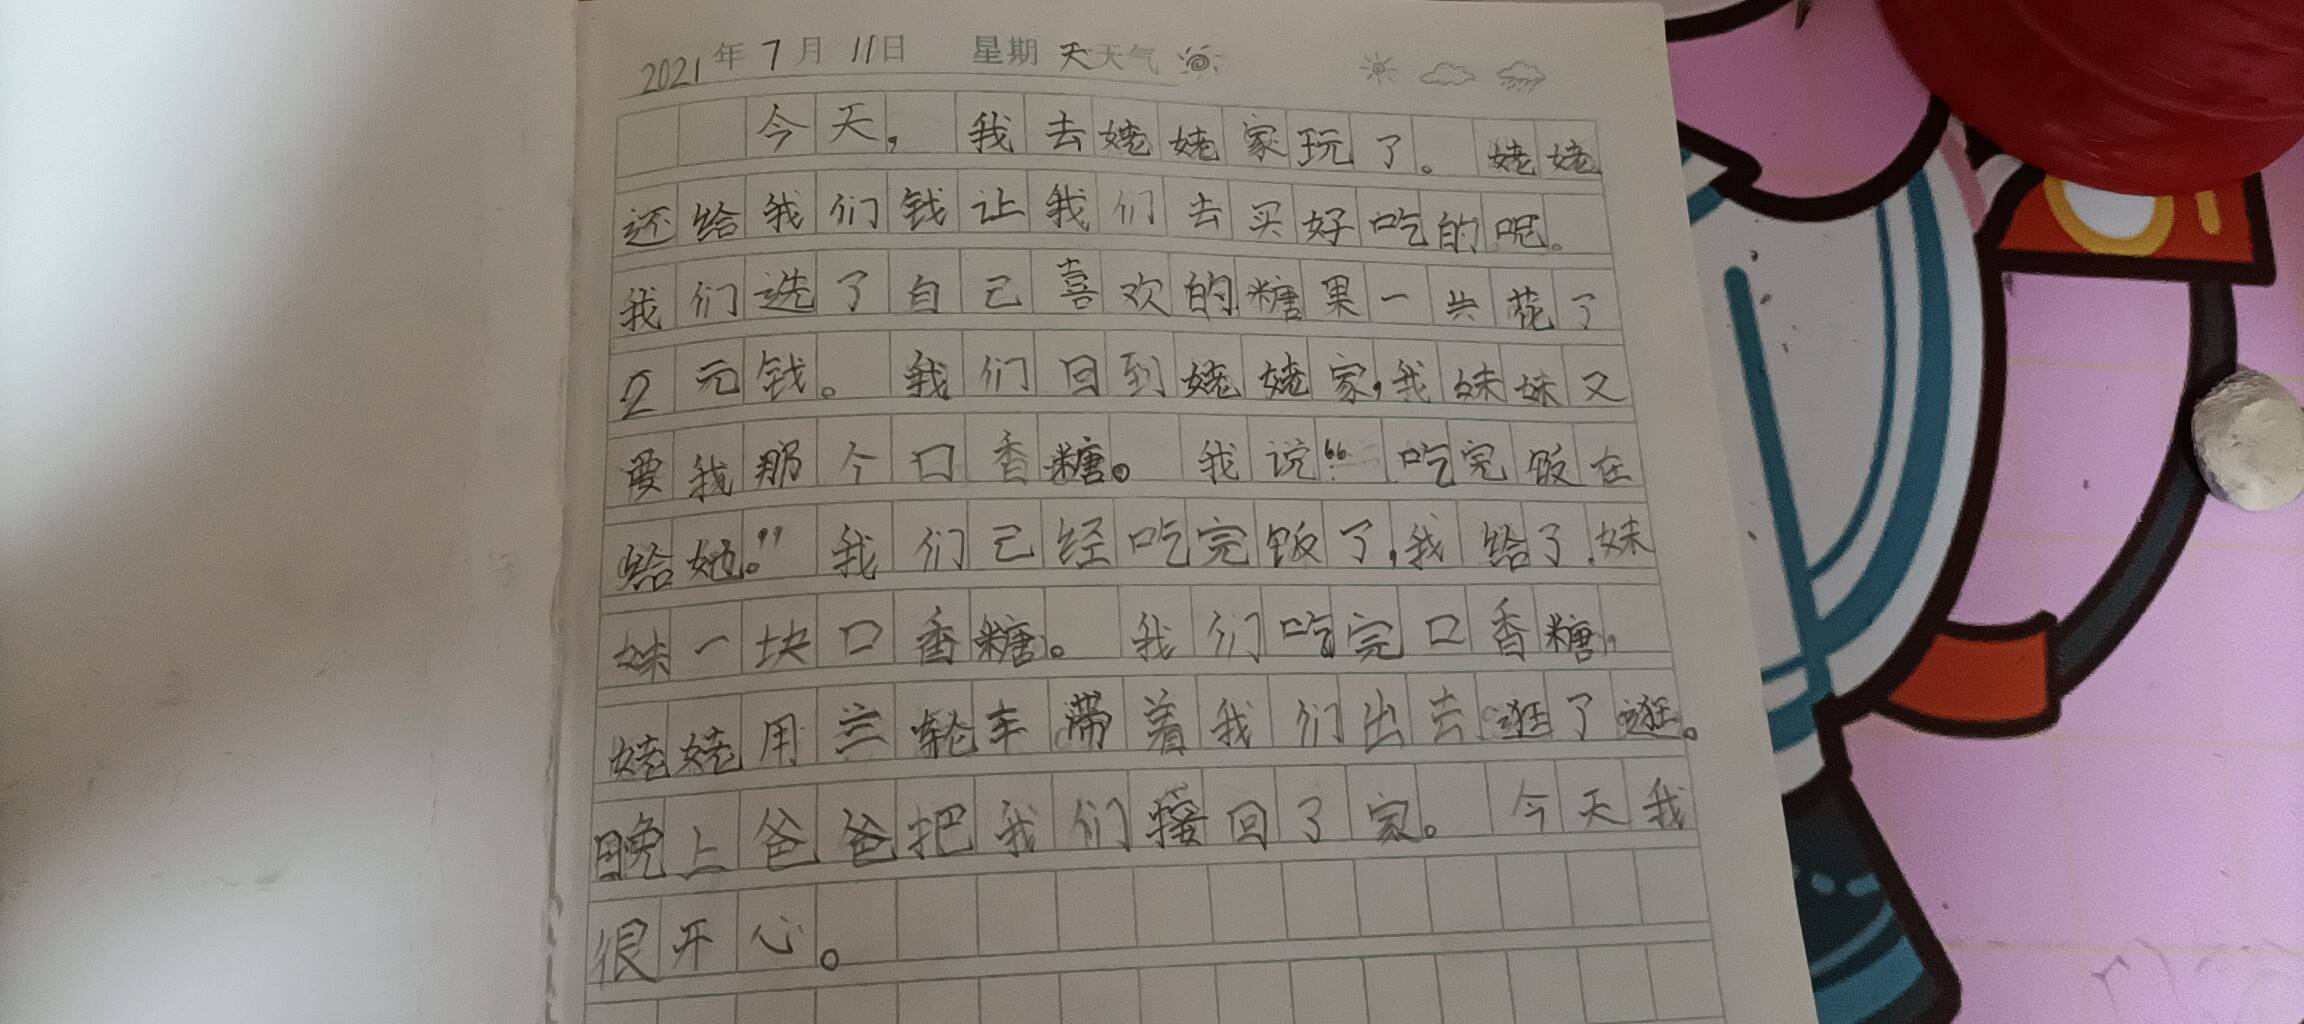 2021年7月11日 星期天天气
今天，我去姥姥家玩了。姥姥
还给我们钱让我们去买好吃的呢。
我们选了自己喜欢的糖果一共花了
2元钱。我们回到姥姥家,我妹妹又
要我那个口香糖。我说“吃完饭在
给她。”我们已经吃完饭了,我给了妹
妹一块口香糖。我们吃完口香糖,
姥姥用三轮车带着我们出去逛了逛。
晚上爸爸把我们接回了家。今天我
很开心。